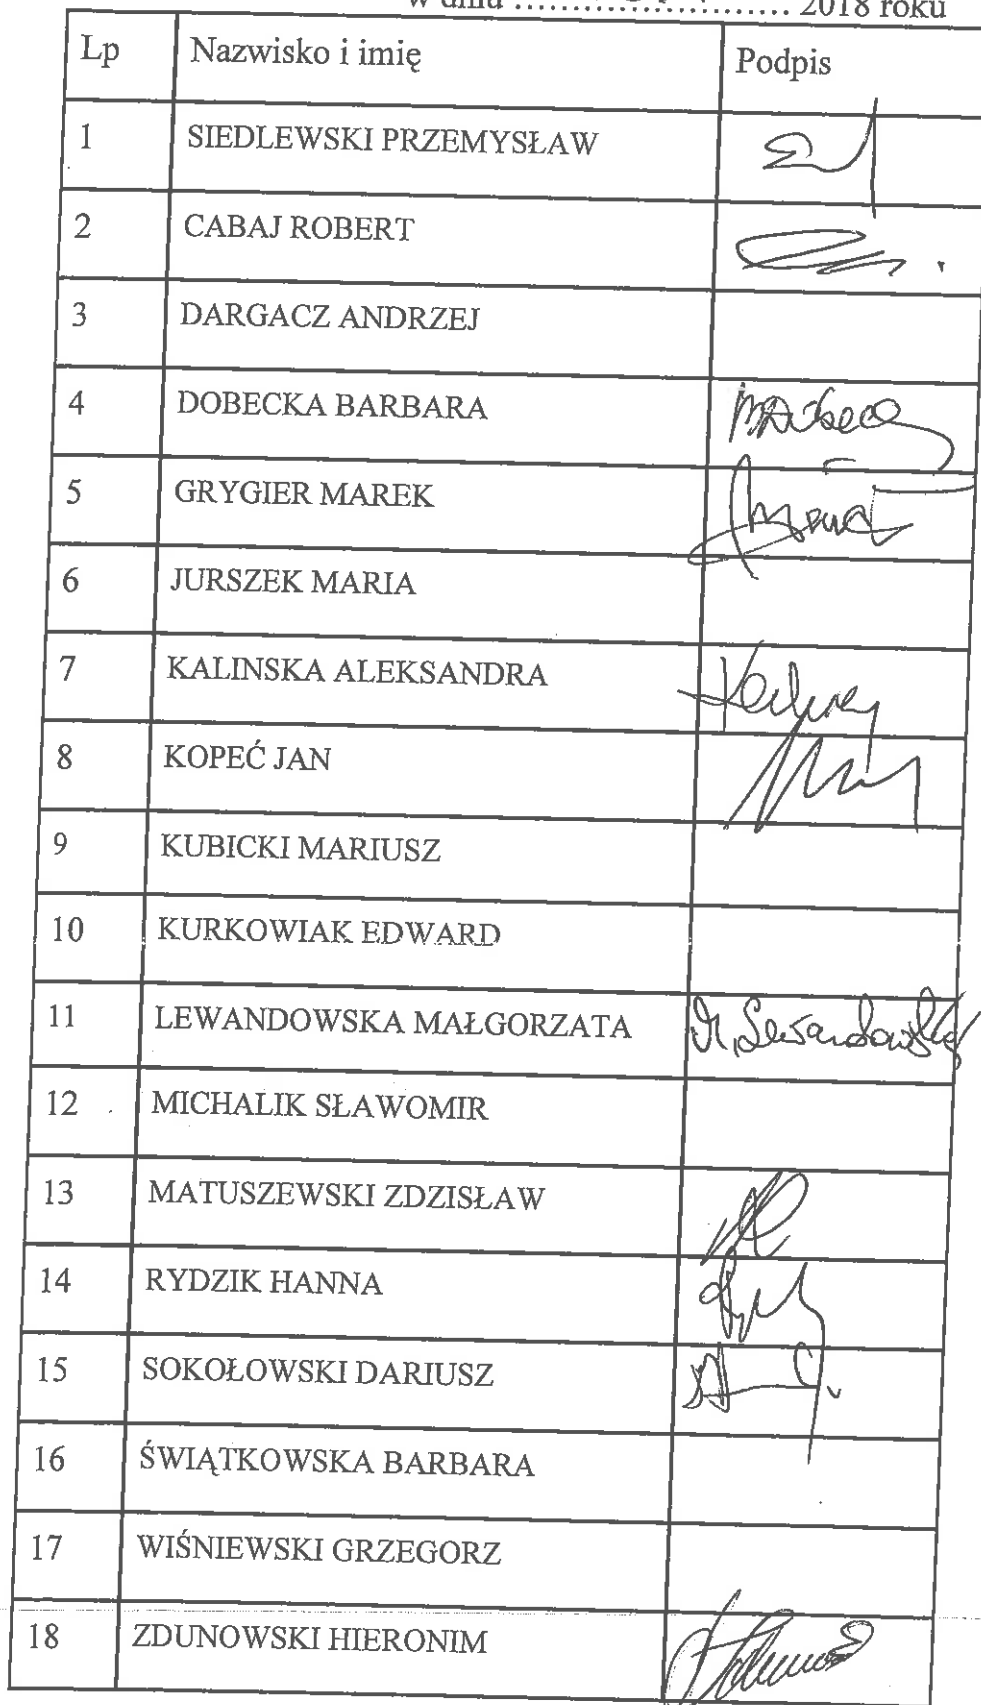 w dniu ........................ 2018 roku
Lp Nazwisko i imię Podpis
1 SIEDLEWSKI PRZEMYSŁAW
2 CABAJ ROBERT
3 DARGACZ ANDRZEJ
4 DOBECKA BARBARA
5 GRYGIER MAREK
6 JURSZEK MARIA
7 KALINSKA ALEKSANDRA
8 KOPEĆ JAN
9 KUBICKI MARIUSZ
10 KURKOWIAK EDWARD
11 LEWANDOWSKA MAŁGORZATA M. Lewandowska
12 MICHALIK SŁAWOMIR
13 MATUSZEWSKI ZDZISŁAW
14 RYDZIK HANNA
15 SOKOŁOWSKI DARIUSZ
16 ŚWIĄTKOWSKA BARBARA
17 WIŚNIEWSKI GRZEGORZ
18 ZDUNOWSKI HIERONIM